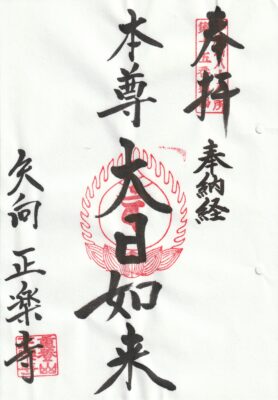 奉拝
奉納経
本尊
大日如来
矢向 正楽寺